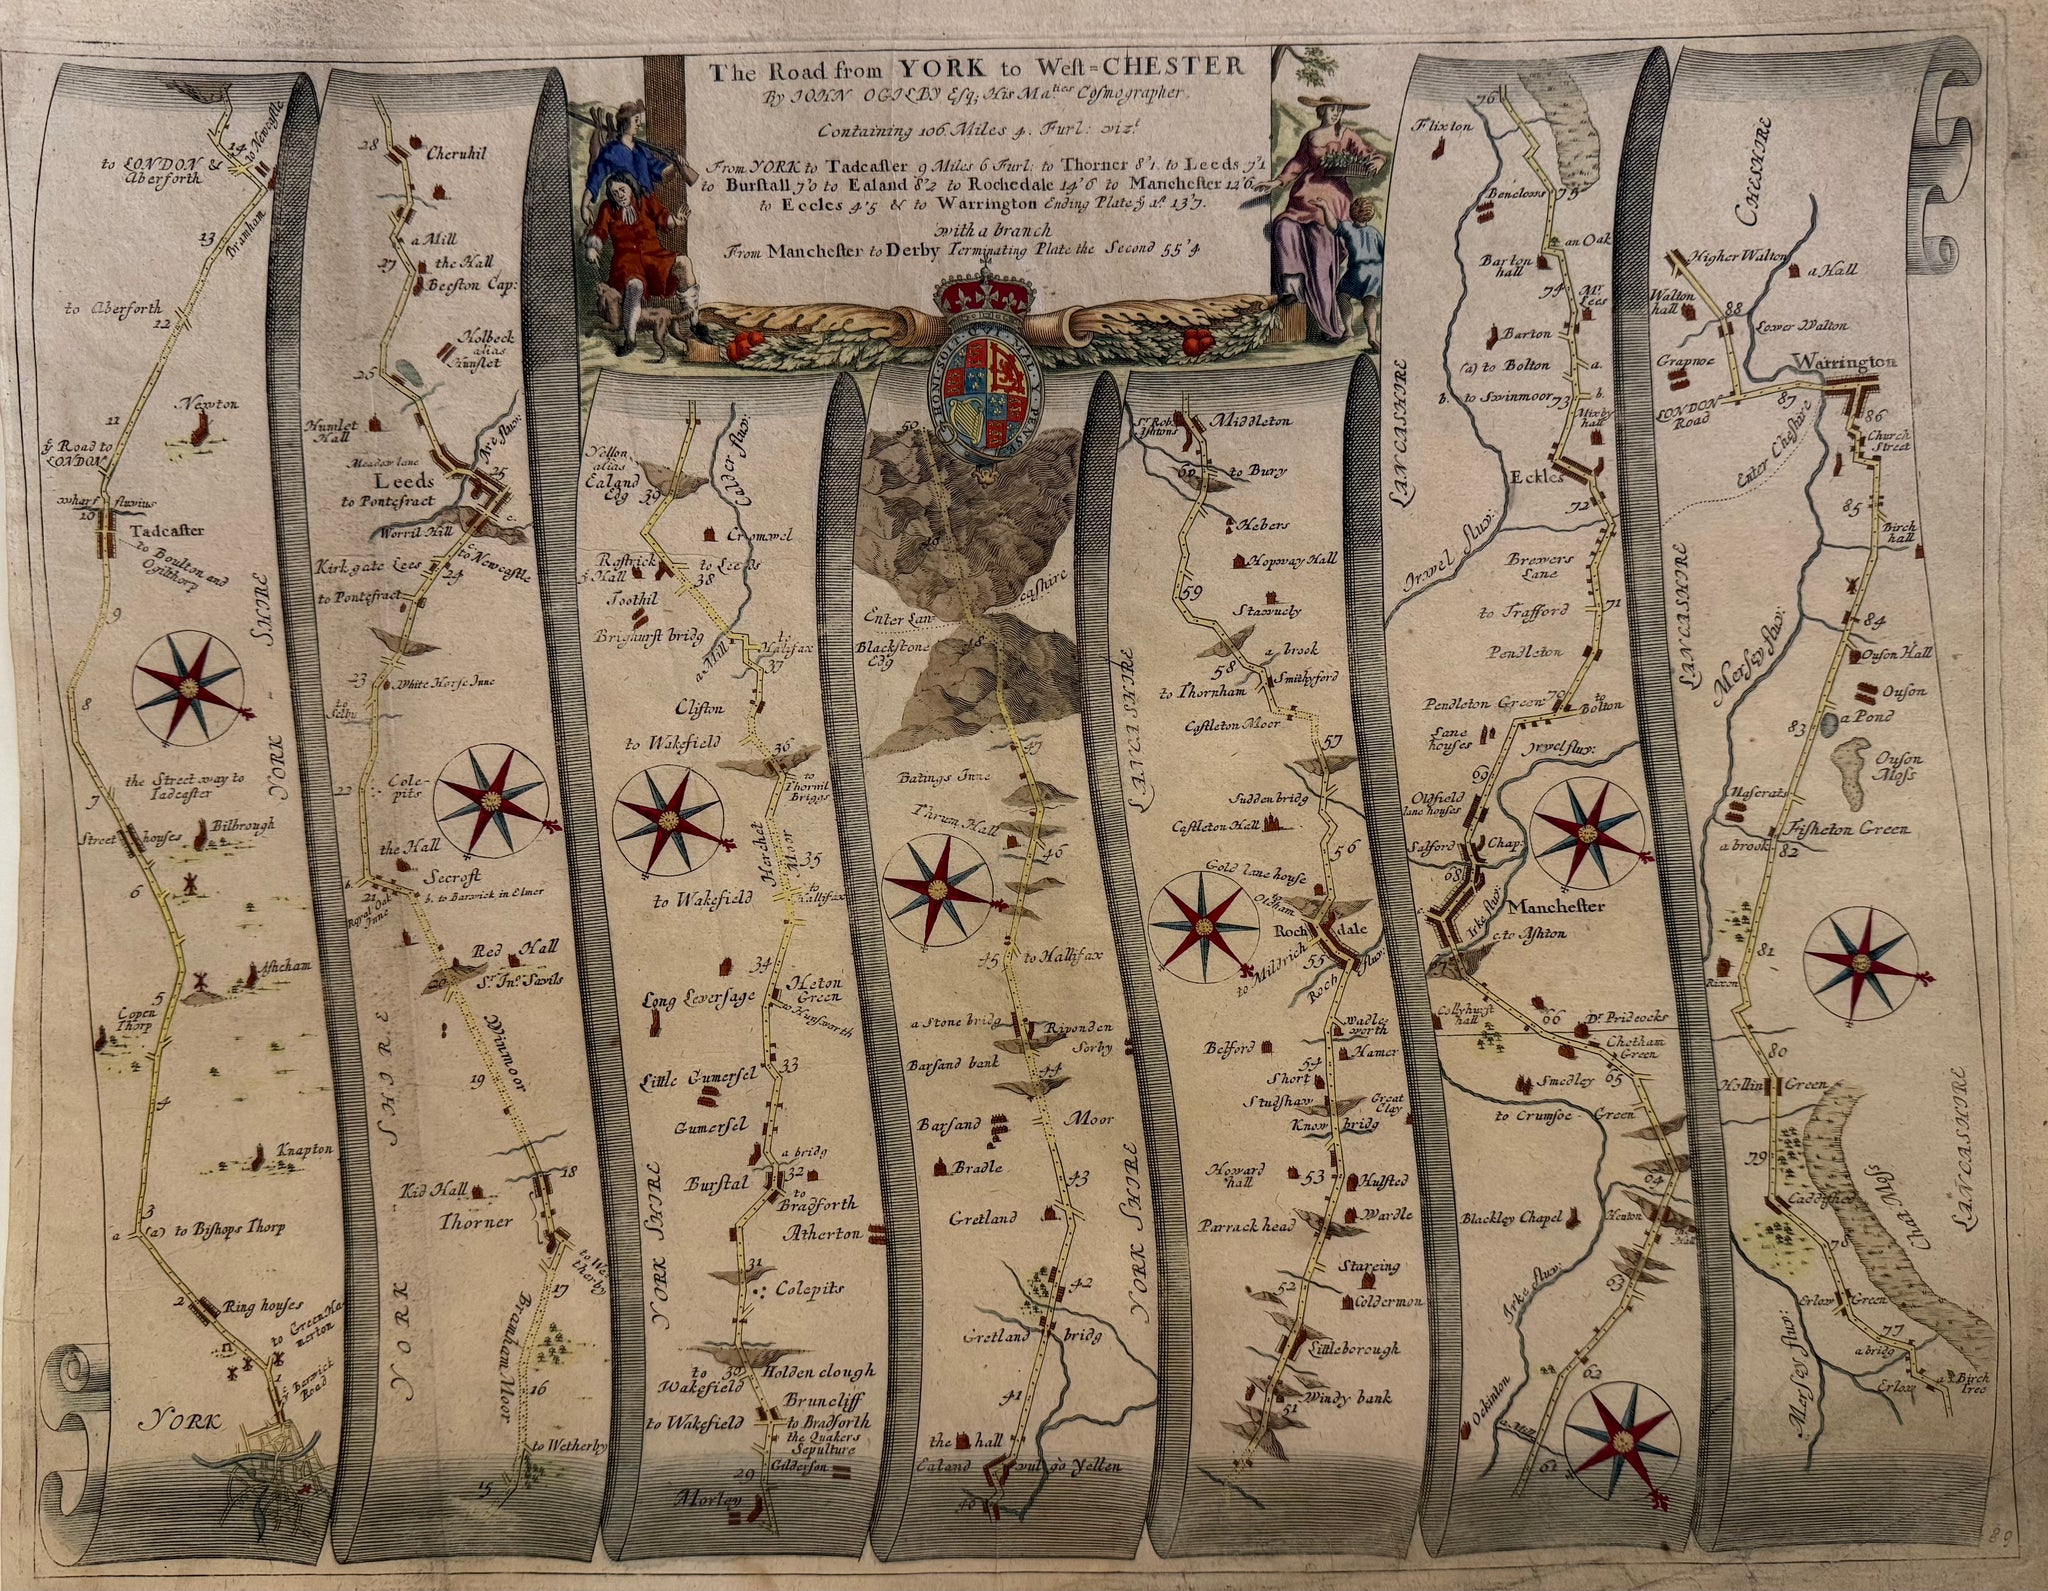 The Road from YORK to West=CHESTER
By IOHN OGILBY Esq; His Ma.ties Cosmographer.
Containing 106. Miles 4. Furl: viz.t
From YORK to Tadcaster 9 Miles 6 Furl: to Thorner 8'1. to Leeds 7'1
to Burstall 7'0 to Ealand 8'2 to Rochedale 14'6 to Manchester 12'6
to Eccles 4'5 & to Warrington Ending Plate ye 1st 13'7.
with a branch
From Manchester to Derby Terminating Plate the Second 55'4
HONI SOIT QUI MAL Y PENSE
14
to Newcastle
to LONDON &
Aberforth
13
Bramham
to Aberforth
12
11
Newton
ye Road to
LONDON
wharf fluvius
10
Tadcaster
to Boulton and
Ogilthorp
9
8
YORK - SHIRE
the Street way to
Tadcaster
7
Street houses
Bilbrough
6
Ashcham
5
Copen
Thorp
4
Knapton
3
a
(a) to Bishops Thorp
2
Ring houses
to Green Ha-
merton
1
ye Berwick
Road
YORK
28
Cheruhil
a Mill
27
the Hall
Beeston Cap:
Holbeck
alias
Hunslet
25
Humlet
Hall
Meadow lane
Are fluv:
Leeds
25
to Pontefract
c.
Worril Hill
c to Newcastle
Kirkgate Lees
24
to Pontefract
23
White Horse Inne
to
Selby
22
Cole-
pits
the Hall
Secroft
b.
21
b. to Barwick in Elmet
Royal Oak
Inne
Red Hall
Sr. Jno. Savils
20
Winmoor
19
18
Kid Hall
Thorner
to We-
therby
17
Bramham Moor
16
to Wetherby
15
YORK SHIRE
Yellon
alias
Ealand
Edg
39
Calder fluv:
Cromwel
Rostrick
ye Hall
to Leeds
38
Toothil
Brighurst bridg
a Mill
to
Halifax
37
Clifton
to Wakefield
36
to
Thornil
Briggs
Herchet Moor
35
to Wakefield
to
Hallifax
34
Heton
Green
Long Leversage
to Hunsworth
33
Little Gumersel
Gumersel
a bridg
32
Burstal
to
Bradforth
Atherton
31
Colepits
YORK SHIRE
30
to
Wakefield
Holden clough
Bruncliff
to Wakefield
to Bradforth
the Quakers
Sepulture
29
Gilderson
Morley
50
49
Enter Lan-
cashire
48
Blackstone
Edg
47
Batings Inne
Thrum Hall
46
45
to Hallifax
a Stone bridg
Riponden
Sorby
Barsand bank
44
Barsand
Moor
Bradle
43
Gretland
42
Gretland bridg
41
the hall
Ealand vulgo Yellen
40
LANCASHIRE
YORK SHIRE
Sr. Rob:
Ashtons
Middleton
60
to Bury
Hebers
Hopway Hall
59
Stawucly
58
a brook
Smithyford
to Thornham
Castleton Moor
57
Sudden bridg
Castleton Hall
56
Gold lane house
to
Oldham
Roch dale
55
to Mildrich
Roch fluv:
Wadle-
worth
Belford
54
Hamer
Short
Studshaw
Great
Clay
Know bridg
Howard
hall
53
Hulsted
Parrack head
Wardle
Stareing
52
Coldermon
Littleborough
Windy bank
51
LANCASHIRE
76
Flixton
75
Benclows
an Oak
Barton
hall
74
Mr.
Lees
Barton
(a) to Bolton
a.
b. to Swinmoor
b.
73
Mixby
hall
Eckles
72
Irwel fluv:
Browers
Lane
to Trafford
71
Pendleton
70
Pendleton Green
to
Bolton
Lane
houses
Irwel fluv:
69
Oldfield
lane houses
Salford
Chap:
68
Manchester
Irke fluv:
c. to Ashton
67
Collyhurst
hall
66
Dr. Prideocks
Chetham
Green
Smedley
65
to Crumsoe - Green
64
Blackley Chapel
Heuton
63
Irke fluv:
62
Ockinton
a Mill
61
LANCASHIRE
CHESHIRE
Higher Walton
a Hall
Walton
hall
88
Lower Walton
Grapnoe
Warrington
87
LONDON
Road
86
Church
Street
Enter Cheshire
85
Birch
hall
Mersey fluv:
84
Ouson Hall
Ouson
a Pond
83
Ouson
Moss
Uascrats
Fisheton Green
a brook
82
81
Rixon
80
Hollin Green
79
Caddished
Chat Moss
78
Erlow Green
77
a bridg
Erlow
a Birch
Tree
Mersey fluv:
LANCASHIRE
89